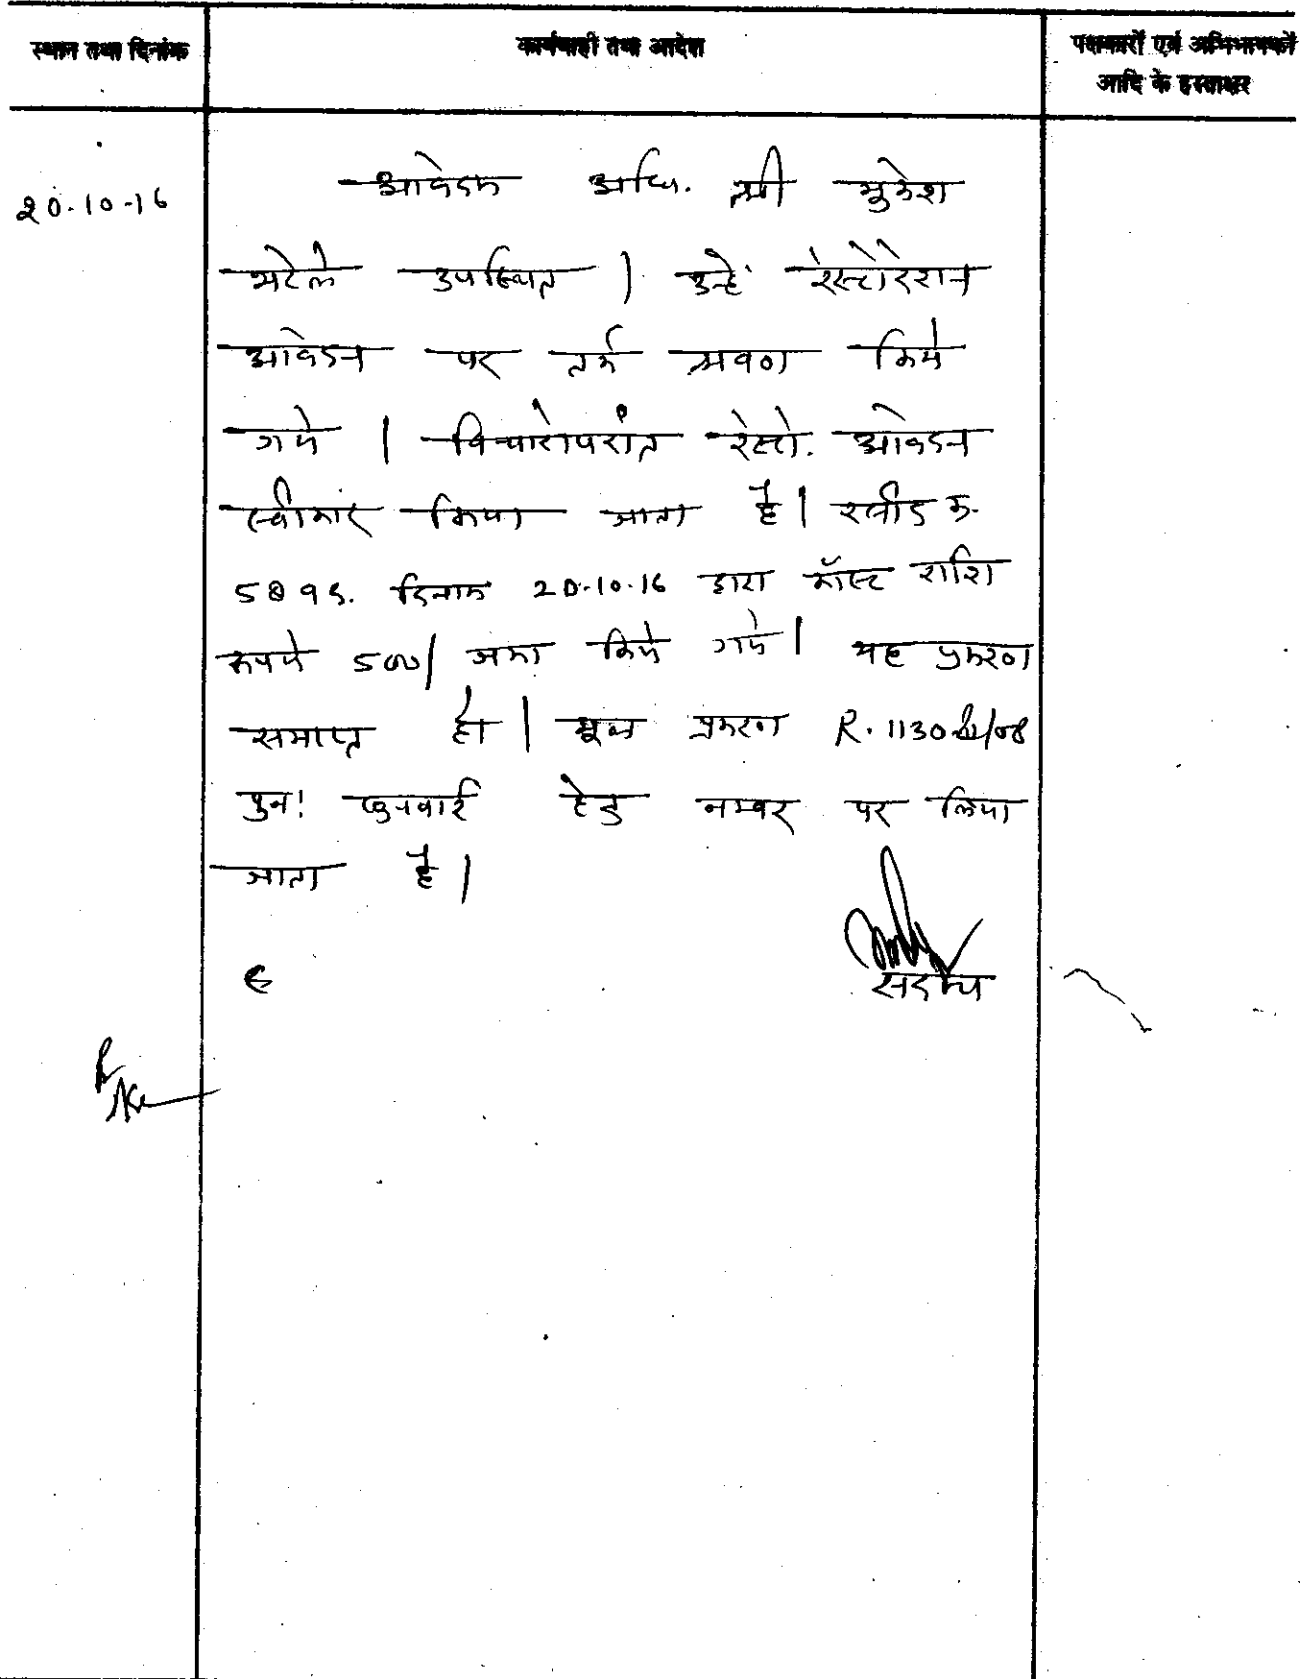 स्थान तथा दिनांक
कार्यवाही तथा आदेश
पक्षकारों एवं अभिभाषकों
आदि के हस्ताक्षर
20-10-16
आवेदक अधि. श्री मुकेश
भटेले उपस्थित । उन्हें रेस्टोरेशन
आवेदन पर तर्क श्रवण किये
गये । विचारोपरांत रेस्टो. आवेदन
स्वीकार किया जाता है । रसीद क्र.
दिनांक 20-10-16 द्वारा कॉस्ट राशि
रूपये 500/ जमा किये गये । यह प्रकरण
समाप्त हो । मूल प्रकरण R. 1130
पुन: सुनवाई हेतु नम्बर पर लिया
जाता है ।
सदस्य